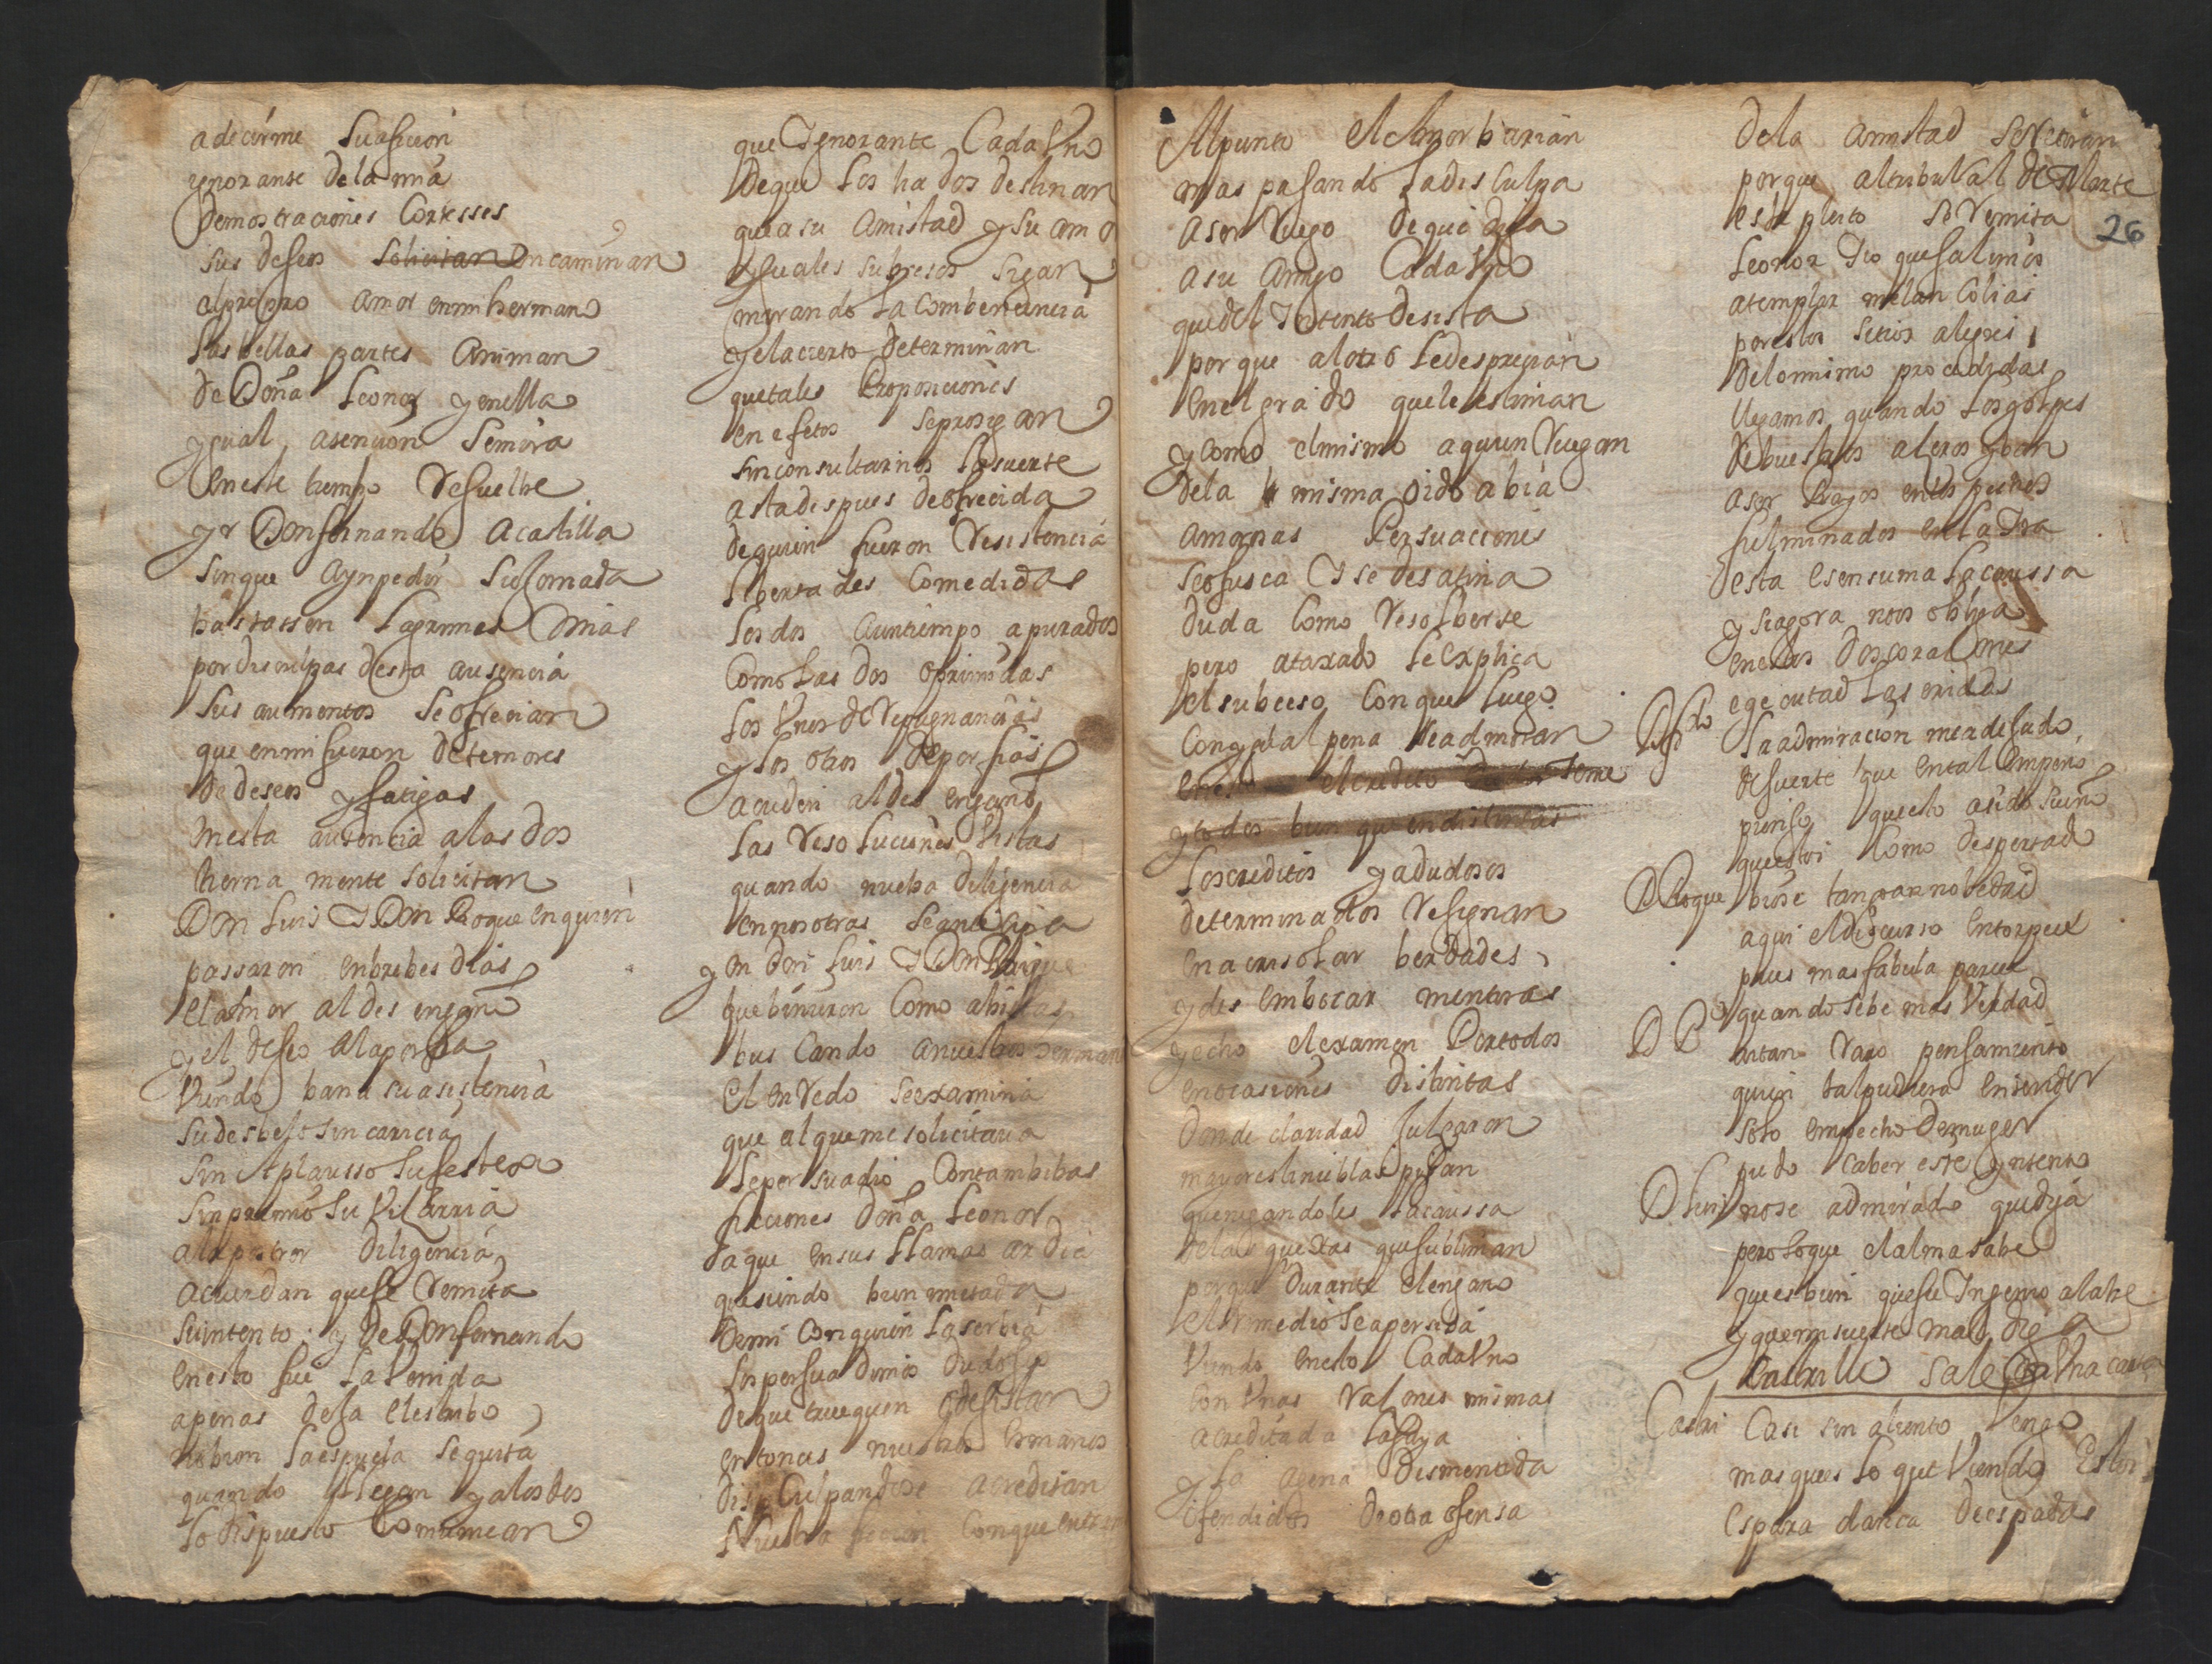 a decirme su aficion
ygnorante de la mia
Demostraciones Cortesses
sus deseos solicitan Encaminan
al propio amor en mi hermano
las bellas partes Animan
de Doña Leonor y en ella
ygual atencion se mira
En este tiempo Resuelbe
yr Don fernando a castilla
sin que a ynpedir su Jornada
bastassen lagrimas mias
por disculpas desta ausencia
sus aumentos se ofrecian
que en mi fueron de temores
de deseos y fatigas
In esta ausencia a las dos
tierna mente solicitan
Don Luis I Don Roque en quien
passaron en brebes dias
el amor al des engaño
y el deseo a la porfia
Viendo bana su asistencia
su desbelo sin caricia
sin Aplausso su fineza
sin premio su Vizarria
a la postrer diligencia
acuerdan que se Remita
su intento y de Don fernando
en esto fue la Venida
apenas desa el estribo
tubieron la espuela se quita
quando llegan y a los dos
lo dispuesto Comunican
que Ignorante Cada Vno
de que los hados destinan
que a su Amistad y su amor
yguales subcesos sigan
mirando la combeniencia
y el acierto determinan
que tales Proposiciones
en efetos se prosigan
sin consultarnos la suerte
asta despues de ofrecida
de quien fueron Resistencia
libertades Comedidas
los dos a un tiempo apurados
Como las dos oprimidas
los Vnos de Repugnancias
y los otros de porfias
acuden al des engaño
las Resoluciones listas
quando nueba diligencia
en nosotras se anticipa
y en Don Luis I Don Roque
que binieron Como abistas
buscando a nuestros Hermanos
el enRedo se examina
que al que me solicitava
se persuadio Con tambibas
ficciones Doña Leonor
da que en sus llamas ardia
que siendo bien imitada
De mi con quien la serbia
los persuadimos dudosa
de que truequen o desistan
entonces nuestros Ermanos
disculpandose acreditan
Nuestra ficcion Con que entran
Al punto el Amor barian
mas pasando la disculpa
a ser Ruego de que diga
a su amigo Cada Vno
que del Intento desista
porque al otro le desprecian
en el grado que le estiman
y como el mismo a quien Ruegan
de la misma oido abia
amorosas Persuaciones
se ofusca I se desatina
duda Como Resolberse
pero atajado le explica
el subceso Con que luego
Con ygual pena se admiran
en esto el credito teme
y todos bien que en distintas
los creditos ya dudosos
determinados Resignan
en acrisolar berdades
y des embozar mentiras
y echo el examen Por todos
en ocasiones distintas
Donde claridad Juzgaron
mayores tinieblas pisan
que negandoles la caussa
de las quexas que subliman
porque durante el engaño
el Remedio se aperciba
Viendo en esto Cada Vno
Con Vnas Razones mismas
acreditada la suya
y la agena desmentida
ofendidos de otra ofensa
de la amistad se Retiran
porque al tribunal de Marte
este pleito se Remita
26
Leonor dio que salimos
a templar melancolias
por estos sitios alegres
de lo mismo procedidas
llegamos quando los golpes
de buestros azeros yban
a ser Rayos en los pechos
fulminados en la Ira
esta es en suma la caussa
y si agora nos obliga
en estos dos corazones
egecutad las eridas
D fdo la admiracion me a dejado
de suerte que en tal Empeño
pienso que esto a sido sueño
que estoi Como despertado
D Roque biose tan gran nobedad
aqui el discurso entorpece
pues mas fabula parece
quando se be mas Verdad
D P a tan Raro pensamiento
quien tal pudiera entender
solo en pecho de muger
pudo Caber este yntento
D Luis no se admirado que diga
pero lo que el alma sabe
que es bien que su Ingenio alabe
y que mi suerte maldiga
Castrillo sale Con Vna carta
Castri Casi sin aliento Vengo
mas que es lo que Viendo Estoi
es para danza de espadas